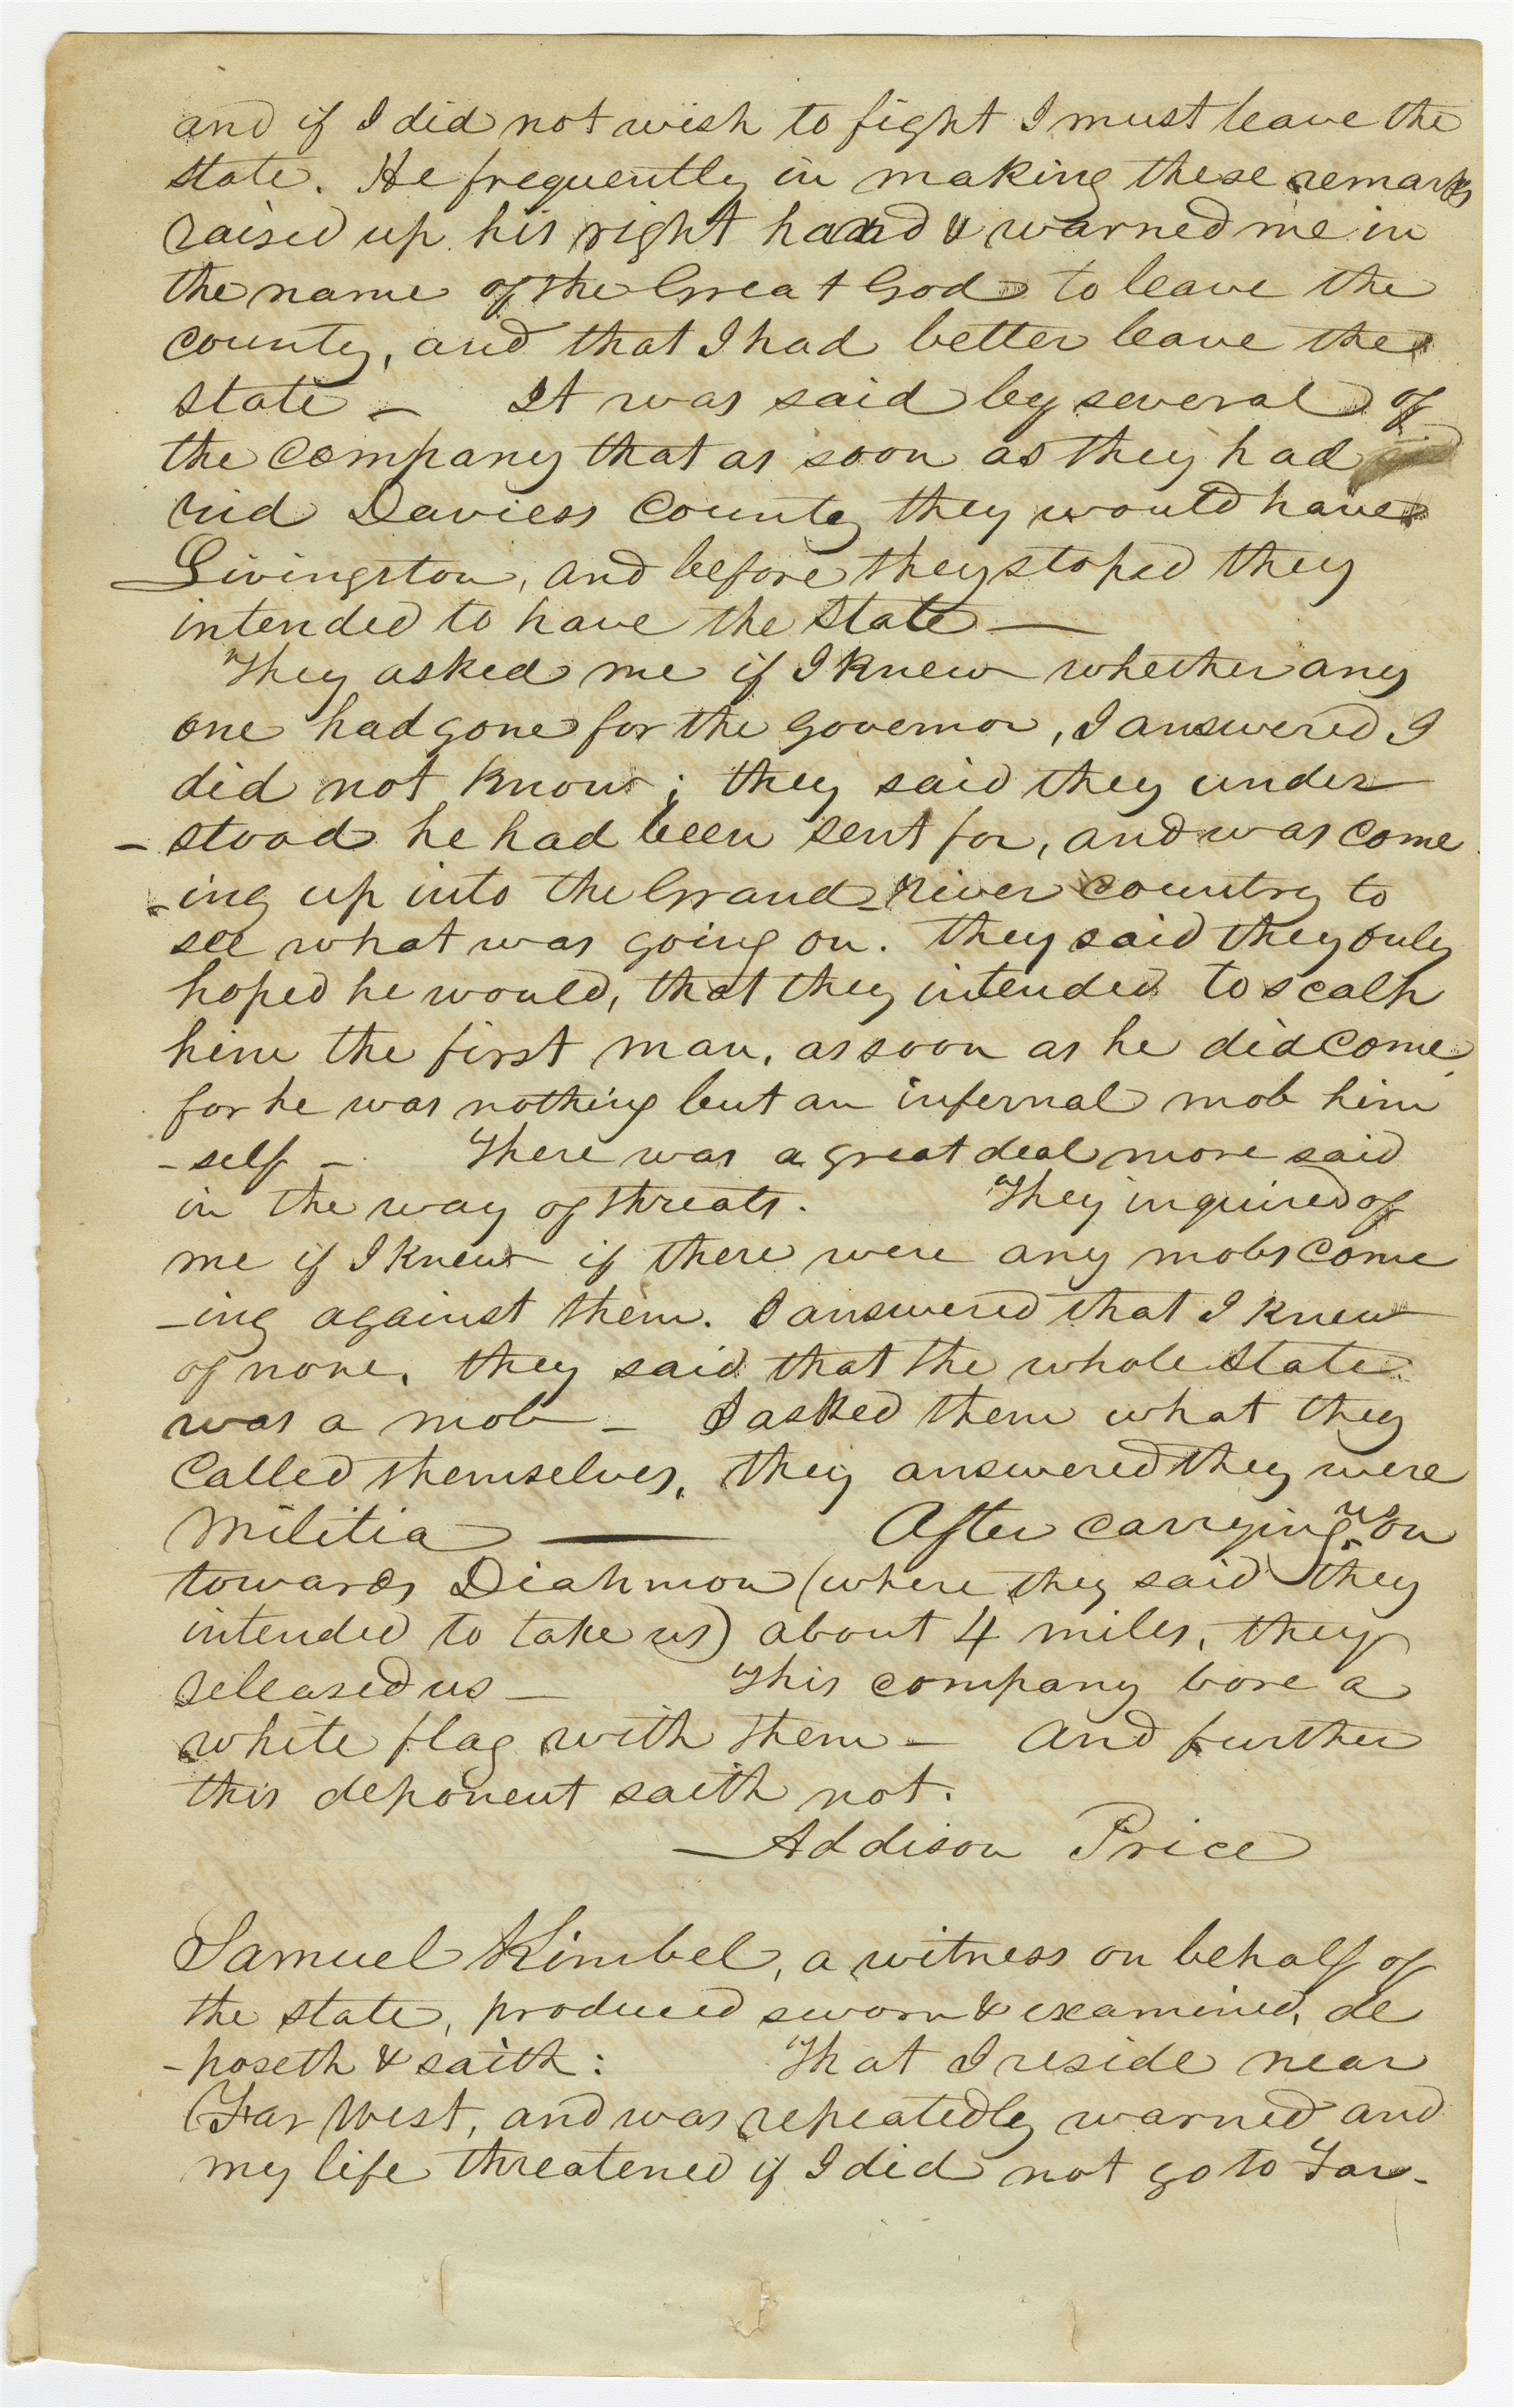 and if I did not wish to fight I must leave the
state. He frequently in making these remarks
raised up his right hand & warned me in
the name of the Great God to leave the
county, and that I had better leave the
state – It was said by several of
the company that as soon as they had
rid Daviess County they would have
Livingston, and before they stoped they
intended to have the State —
They asked me if I knew whether any
one had gone for the Governor, I answered I
did not know; they said they under
-stood he had been sent for, and was come
-ing up into the Grand-river country to
see what was going on. they said they only
hoped he would, that they intended to scalp
him the first man, as soon as he did come,
for he was nothing but an infernal mob him
-self – There was a great deal more said
in the way of threats. They inquired of
me if I knew if there were any mobs come
-ing against them. I answered that I knew
of none, they said that the whole State
was a mob – I asked them what they
called themselves, they answered they were
Militia — After carrying us on
towards Diahmon (where they said they
intended to take us) about 4 miles, they
released us – This company bore a
white flag with them – And further
this deponent saith not.
Addison Price
Samuel Kimbel, a witness on behalf of
the state, produced sworn & examined, de
-poseth & saith: That I reside near
Far West, and was repeatedly warned and
my life threatened if I did not go to Far-